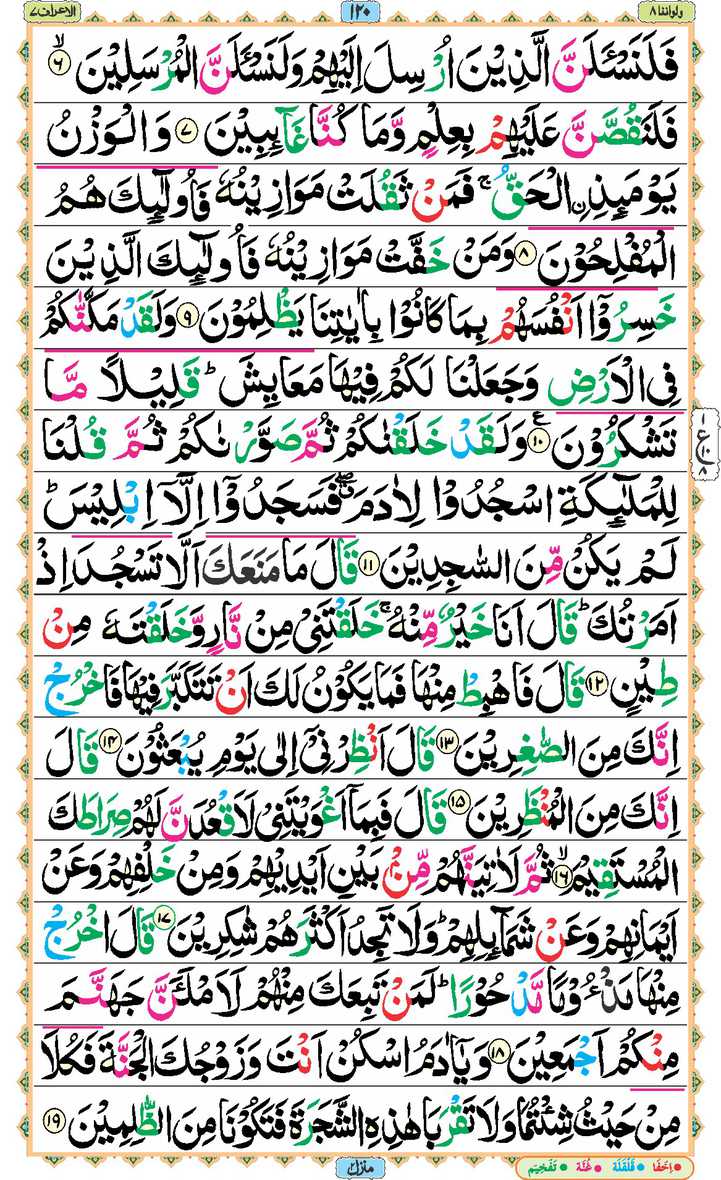 الاعراف ٧ ١٢٠ ولواننا ٨
فَلَنَسْـَٔلَنَّ الَّذِيْنَ اُرْسِلَ اِلَيْهِمْ وَلَنَسْـَٔلَنَّ الْمُرْسَلِيْنَ ۙ‏﴿۶﴾
فَلَنَقُصَّنَّ عَلَيْهِمْ بِعِلْمٍ وَّمَا كُنَّا غَآئِبِيْنَ ﴿۷﴾ وَالْوَزْنُ
يَوْمَئِذِ ۨالْحَقُّ ۚ فَمَنْ ثَقُلَتْ مَوَازِيْنُهٗ فَاُولٰٓئِكَ هُمُ
الْمُفْلِحُوْنَ ﴿۸﴾ وَمَنْ خَفَّتْ مَوَازِيْنُهٗ فَاُولٰٓئِكَ الَّذِيْنَ
خَسِرُوْٓا اَنْفُسَهُمْ بِمَا كَانُوْا بِاٰيٰتِنَا يَظْلِمُوْنَ ﴿۹﴾ وَلَقَدْ مَكَّنّٰكُمْ
فِى الْاَرْضِ وَجَعَلْنَا لَكُمْ فِيْهَا مَعَايِشَ ؕ قَلِيْلًا مَّا
تَشْكُرُوْنَ ﴿۱۰﴾ ع وَلَقَدْ خَلَقْنٰكُمْ ثُمَّ صَوَّرْنٰكُمْ ثُمَّ قُلْنَا
لِلْمَلٰٓئِكَةِ اسْجُدُوْا لِاٰدَمَ ۖ فَسَجَدُوْٓا اِلَّاۤ اِبْلِيْسَ ؕ
لَمْ يَكُنْ مِّنَ السّٰجِدِيْنَ ﴿۱۱﴾ قَالَ مَا مَنَعَكَ اَلَّا تَسْجُدَ اِذْ
اَمَرْتُكَ ؕ قَالَ اَنَا خَيْرٌ مِّنْهُ ۚ خَلَقْتَنِىْ مِنْ نَّارٍ وَّخَلَقْتَهٗ مِنْ
طِيْنٍ ﴿۱۲﴾ قَالَ فَاهْبِطْ مِنْهَا فَمَا يَكُوْنُ لَكَ اَنْ تَتَكَبَّرَ فِيْهَا فَاخْرُجْ
اِنَّكَ مِنَ الصّٰغِرِيْنَ ﴿۱۳﴾ قَالَ اَنْظِرْنِىْۤ اِلٰى يَوْمِ يُبْعَثُوْنَ ﴿۱۴﴾ قَالَ
اِنَّكَ مِنَ الْمُنْظَرِيْنَ ﴿۱۵﴾ قَالَ فَبِمَاۤ اَغْوَيْتَنِىْ لَاَقْعُدَنَّ لَهُمْ صِرَاطَكَ
الْمُسْتَقِيْمَ ۙ‏﴿۱۶﴾ ثُمَّ لَاٰتِيَنَّهُمْ مِّنْۢ بَيْنِ اَيْدِيْهِمْ وَمِنْ خَلْفِهِمْ وَعَنْ
اَيْمَانِهِمْ وَعَنْ شَمَآئِلِهِمْ ؕ وَلَا تَجِدُ اَكْثَرَهُمْ شٰكِرِيْنَ ﴿۱۷﴾ قَالَ اخْرُجْ
مِنْهَا مَذْءُوْمًا مَّدْحُوْرًا ؕ لَمَنْ تَبِعَكَ مِنْهُمْ لَاَمْلَـَٔنَّ جَهَنَّمَ
مِنْكُمْ اَجْمَعِيْنَ ﴿۱۸﴾ وَيٰۤاٰدَمُ اسْكُنْ اَنْتَ وَزَوْجُكَ الْجَنَّةَ فَكُلَا
مِنْ حَيْثُ شِئْتُمَا وَلَا تَقْرَبَا هٰذِهِ الشَّجَرَةَ فَتَكُوْنَا مِنَ الظّٰلِمِيْنَ ﴿۱۹﴾
١ ع ١٠ ٨
منزل ٢
اِخْفَا قَلْقَلَه غُنَّه تَفْخِيْم